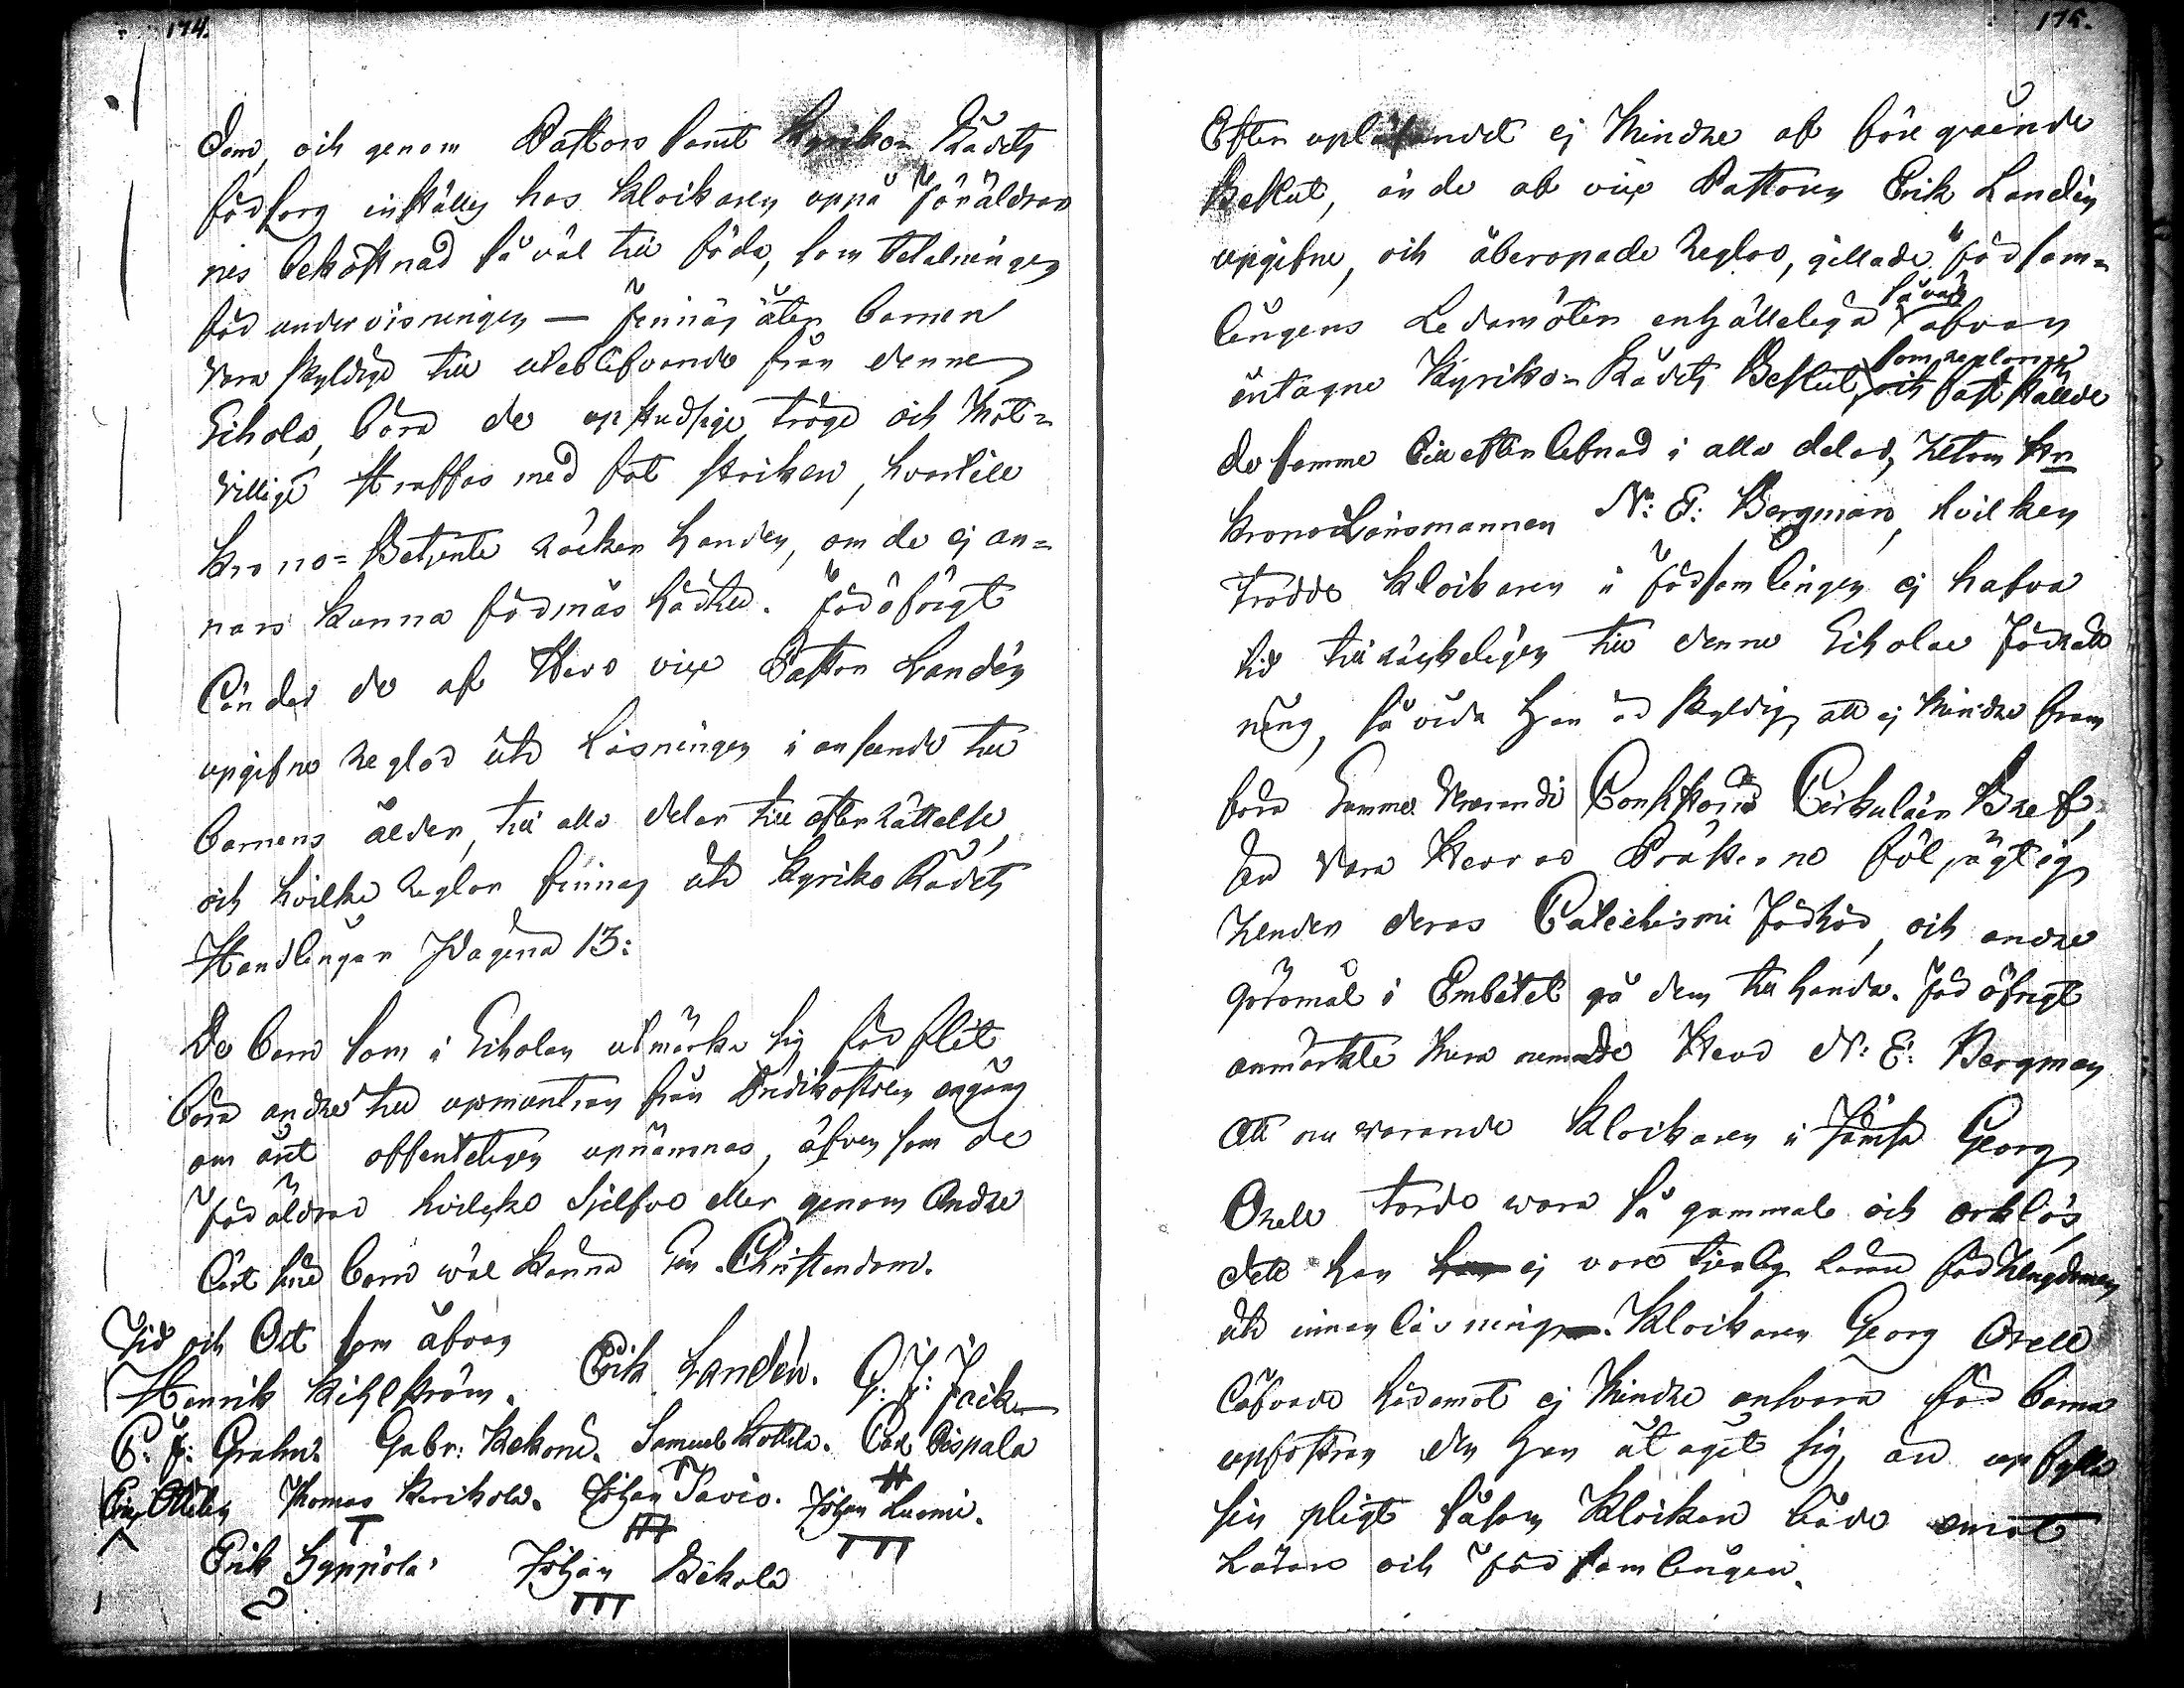 174.
dom, och genom Pastors samt Kyrko= Rådets
försorg inställes hos Klockaren uppå föräldrar
nes bekostnad så väl till föda, som betalningen
för undervisningen — Finnas åter barnen
vara skyldige till uteblifvande från denne
Schola, böra de upstudsige tröge och mot=
villige straffas med fot stocken, hvartill
Krono= Betjente räcker handen, om de ej an=
nars kunna förmås härtill. För öfrigt
länder de af Herr vice Pastor Landén
upgifne reglor uti läsningen i anseende till
barnens ålder, till alla delar till efterrättelse,
och hvilka reglor finnas uti Kyrko Rådets
Handlingar Pagina 13:
De barn som i Scholan utmärka sig för flit
böra andre till upmuntran från Predikostolen engång
om året offenteligen upnämnas, äfven som de
föräldrar hvilka sjelfve eller genom andre
lärt sine barn wäl kunna sin Christendom.
Tid och Ort som åfvan
Henrik Kihlström. Erik Landén. G: J: Jack
C. J: Grahn. Gabr: Kekoni. Samuel Kottila. Carl Pispala
Thomas Kerikola. Johan Savio. Johan Luomi.
Erik Hyppölä Johan Sikala
175.
Efter upläsandet ej mindre af före gående
Beslut, än de af vice Pastoren Erik Landén
upgifne, och åberopade reglor, gillade försam=
lingens Ledamöter enhälleligen såväl åfvan
intagne Kyrko= Rådets Beslut, som reglorne och fastställde
desamme till efterlefnad i alla delar, utom
Krono Länsmannen N: E: Bergman, hvilken
trodde Klockaren i Församlingen ej hafva
tid tillräckeligen till denne Scholæ förrätt
ning, så vida han är skyldig att ej mindre fram
föra Domme Havandi Consistorii Cirkulair Bref,
än vara Herrar Prästerne följagtig
under deras Catechismi förhör, och andre
göromål i Embetet gå dem till handa. För öfrigt
anmärkte bem nemnde Herr N: E: Bergman
att nu warande Klockaren i Jämsä Georg
Orell torde wara så gammal och orklös,
det han ej vore tjenlig lärare för ungdomen
uti innanläsning. Klockaren Georg Orell
låfvade häremot ej mindre ansvara för barna
upfostran den han åtagit sig, än upfylla
sin pligt såsom Klockare både emot
Lärare och Församlingen.